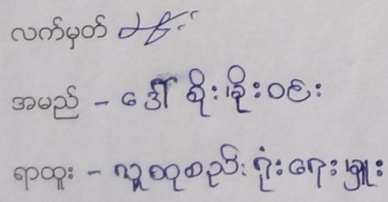 လက်မှတ်
အမည် - ဒေါ်စိုးစိုးဝင်း
ရာထူး - လူထုစည်းရုံးရေးမှူး